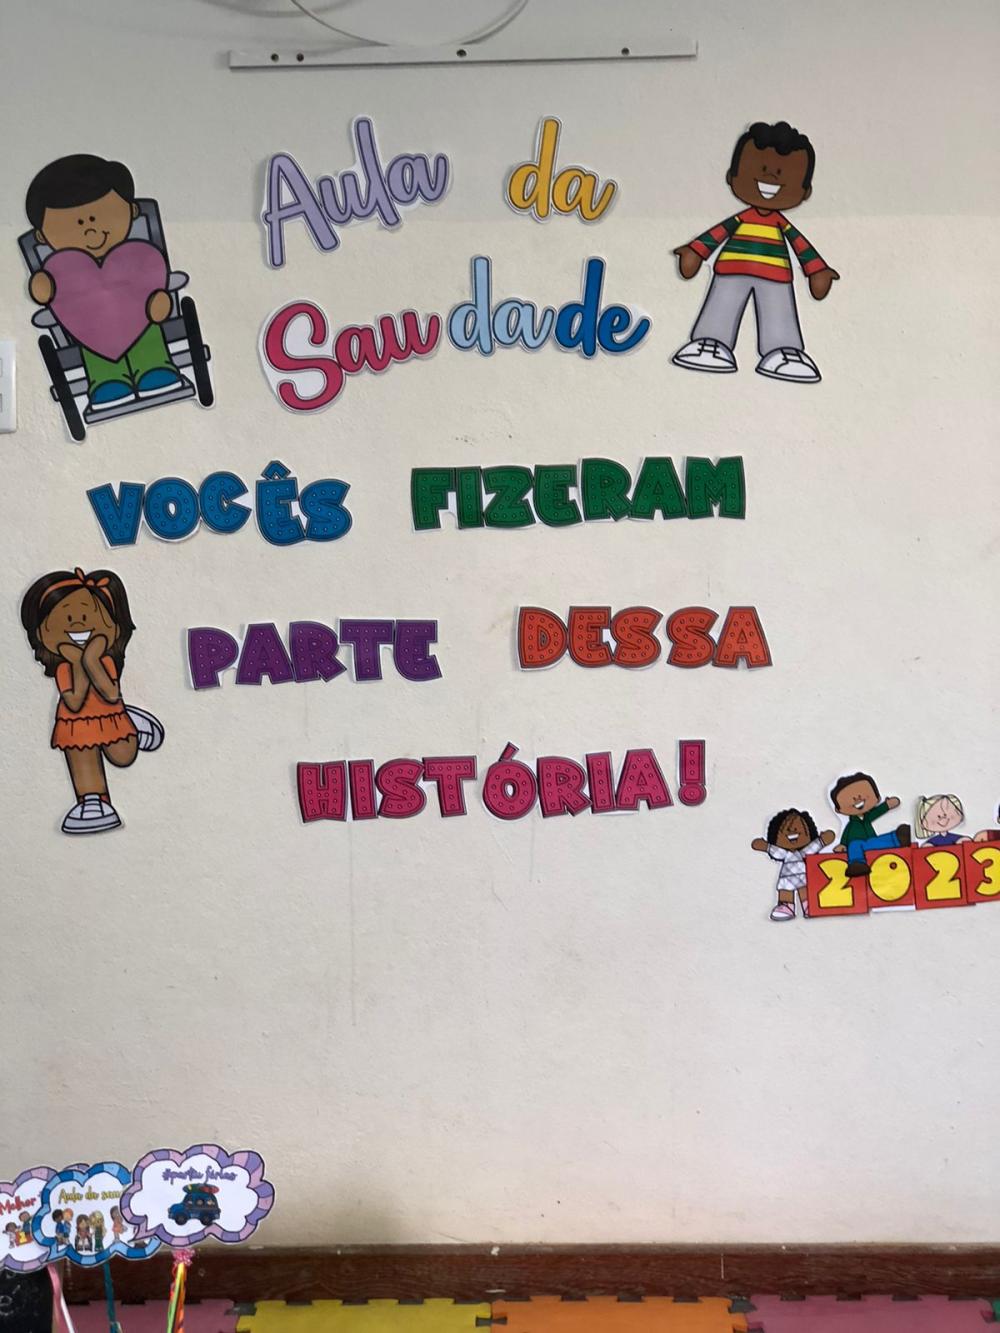 Aula da
Saudade
VOCÊS FIZERAM
PARTE DESSA
HISTÓRIA!
2023
Melhor
Aula da
#partiu férias